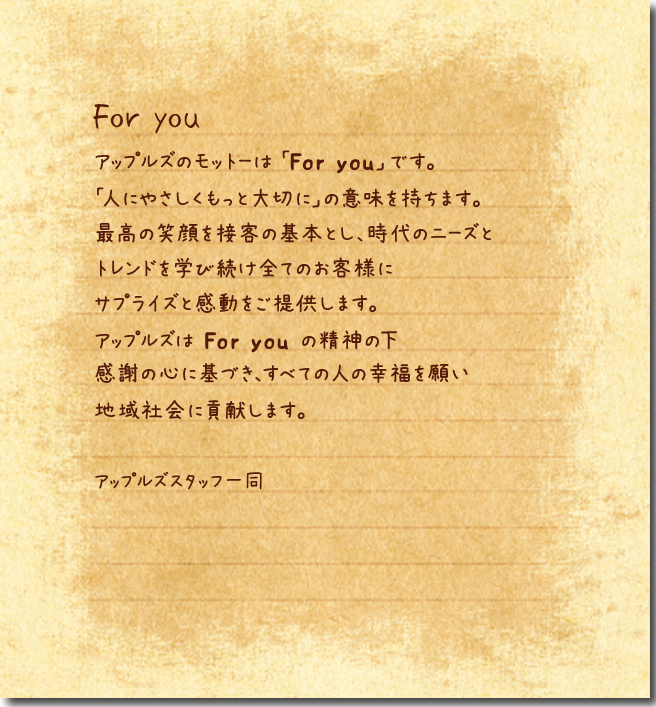 For you
アップルズのモットーは「For you」です。
「人にやさしくもっと大切に」の意味を持ちます。
最高の笑顔を接客の基本とし、時代のニーズと
トレンドを学び続け全てのお客様に
サプライズと感動をご提供します。
アップルズは For you の精神の下
感謝の心に基づき、すべての人の幸福を願い
地域社会に貢献します。
アップルズスタッフ一同